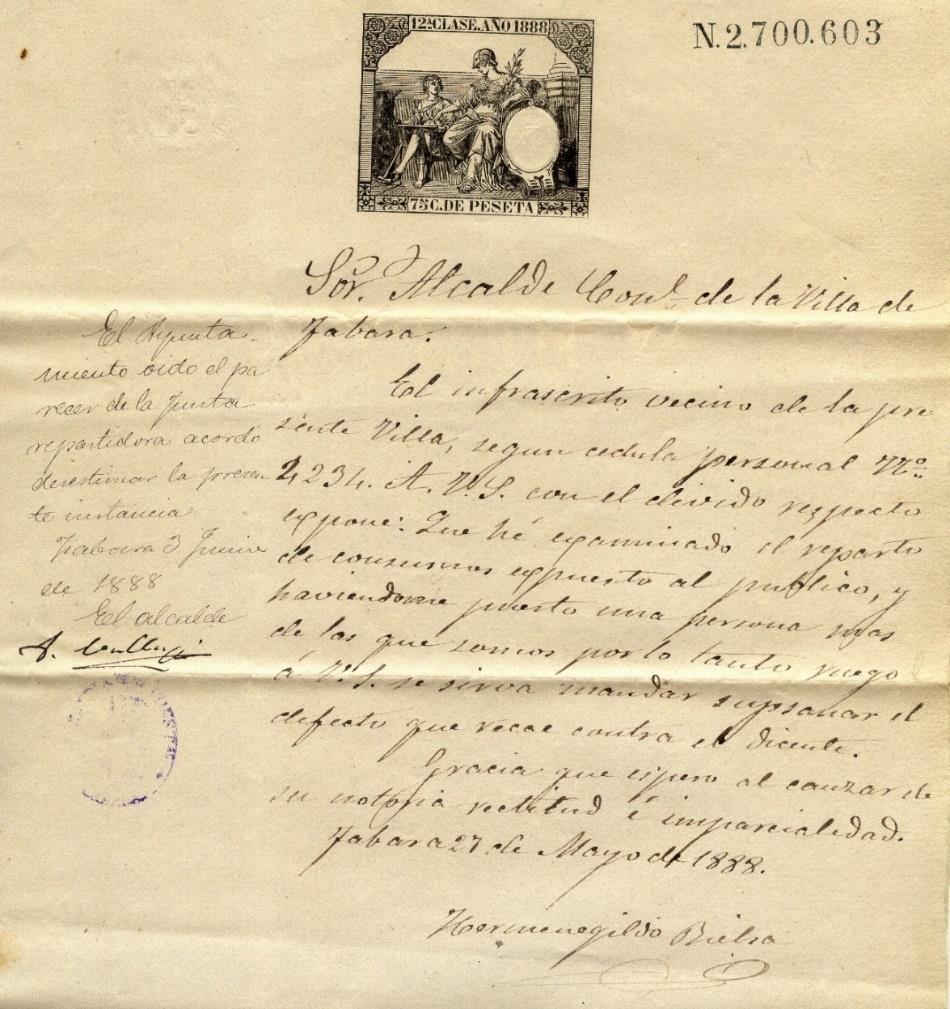 12ª CLASE. AÑO 1888
N.2.700.603
75C. DE PESETA
Sor. Alcalde Conl. de la Villa de
Fabara.
El infrascrito vecino de la pre
sente Villa, segun cedula personal Nº
2,234. A. V.S. con el devido respecto
expone: Que hé examinado el reparto
de consumos expuesto al publico, y
haviendome puesto una persona mas
de las que somos por lo tanto ruego
á V.S. se sirva mandar supsanar el
defecto que recae contra el dicente.
Gracia que espero al canzar de
su notoria rectitud é imparcialedad.
Fabara 27 de Mayo de 1888.
Hermenegildo Bielsa
El Ayunta-
miento oido el pa
recer de la Junta
repartidora acordó
desestimar la presen
te instancia
Fabara 3 Junio
de 1888
El alcalde